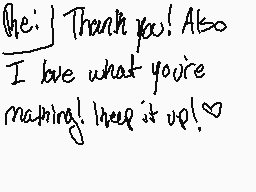 Re: Thank you! Also
I love what you're
making! Keep it up! ♡